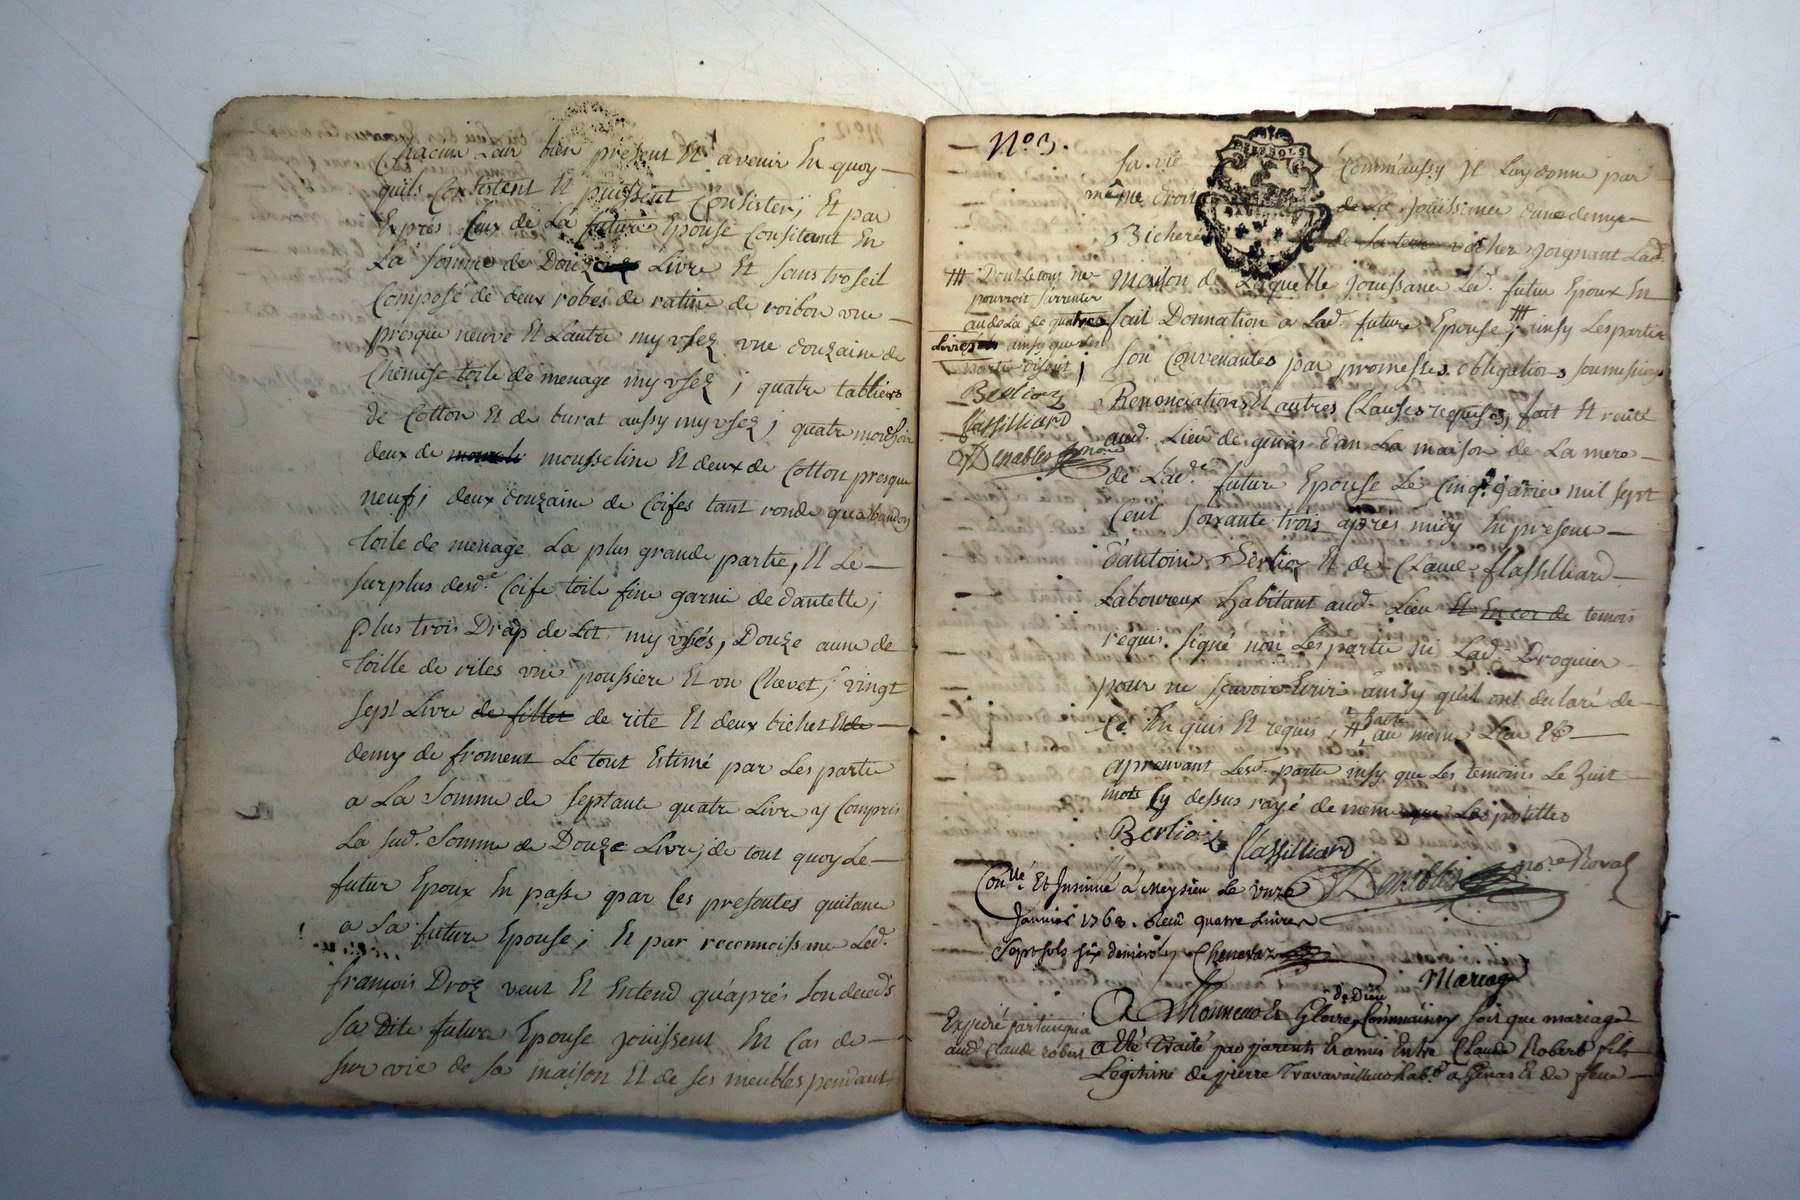 Chacun Leur bien présent Et avenir En quoy
quils Consistent Et puissent Consister, Et par
Exprés Ceux de La future Epouse Consitant En
La somme de Douze Livre Et sons troseil
Composé de deux robes de ratine de voibon une
presque neuve Et Lautre my usez une douzaine de
Chemise toile de menage my usez ; quatre tabliers
de Cotton Et de burat aussy my usez ; quatre mouchoir
deux de mousseline Et deux de Cotton presque
neuf ; deux douzaine de Coifes tant ronde qu'a
toile de menage La plus grande partie, Et Le
surplus desd.e Coife toile fine garni de dantelle ;
plus trois Drap de Lit my usés, Douze aune de
toille de rites une poussiere Et un Chevet ; vingt
sept Livre de fillet de rite Et deux bichet Et de
demy de froment Le tout Estimé par Les partie
a La Somme de septante quatre Livre y Compris
La sud. Somme de Douze Livre ; de tout quoy Le
futur Epoux En passe par Ces presentes quitance
a Sa future Epouse ; Et par reconnoissance Led.
françois Droz veut Et Entend qu'aprés Son decéds
Sa Dite future Epouse jouissent En Cas de
Sur vie de Sa maison Et de Ses meubles pendant
N.o 3.
Sa vie Comm'aussy Il Luy donne par
même droit de La jouissance d'une demye
Bicherée de Sa terre joignant Lad.
maison de Laquelle jouissance Led. futur Epoux En
fait Donnation a Lad. future Epouse ; ainsy Les partie
son Convenantes par promesses obligations soumissions
Renonciations Et autres Clauses requises, fait Et recité
aud. Lieu de genas dan La maison de La mere
de Lad.e future Epouse Le Cinq. janier mil sept
Cent soixante trois apres midy En presence
d'antoine Berlioz Et de Claude flassilliard
Laboureux habitant aud. Lieu Et Encor de temois
requis. Signé non Les partie ni Lad. Droguier
pour ne scavoir Ecrire ainsy quil ont declaré de
Ce Enquis Et requis
aprouvant Lesd. partie insy que Les temoins Le huit
mots Cy dessus rayé de meme que Les postilles
Berlioz
flassilliard
no.re Royal
# Dont Le tout ne
pourroit s'arrenter
au de La de quatre
Livres ainsy que Les
partie disent ;
Berlioz
flassilliard
Con.llé Et Insinué à Meysieu Le unze
Janvier 1763. Receu quatre Livres
Sept sols six deniers Chenavaz
Mariage
A L'honneur Et Gloire de Dieu, Comm'ainsy soit que mariage
a Eté Traité par parents Et amis Entre Claude Robert fils
Légitime de pierre Travavailleur hab.t à Genas Et de feue
Expedié partanqua
aud. Claude Robert